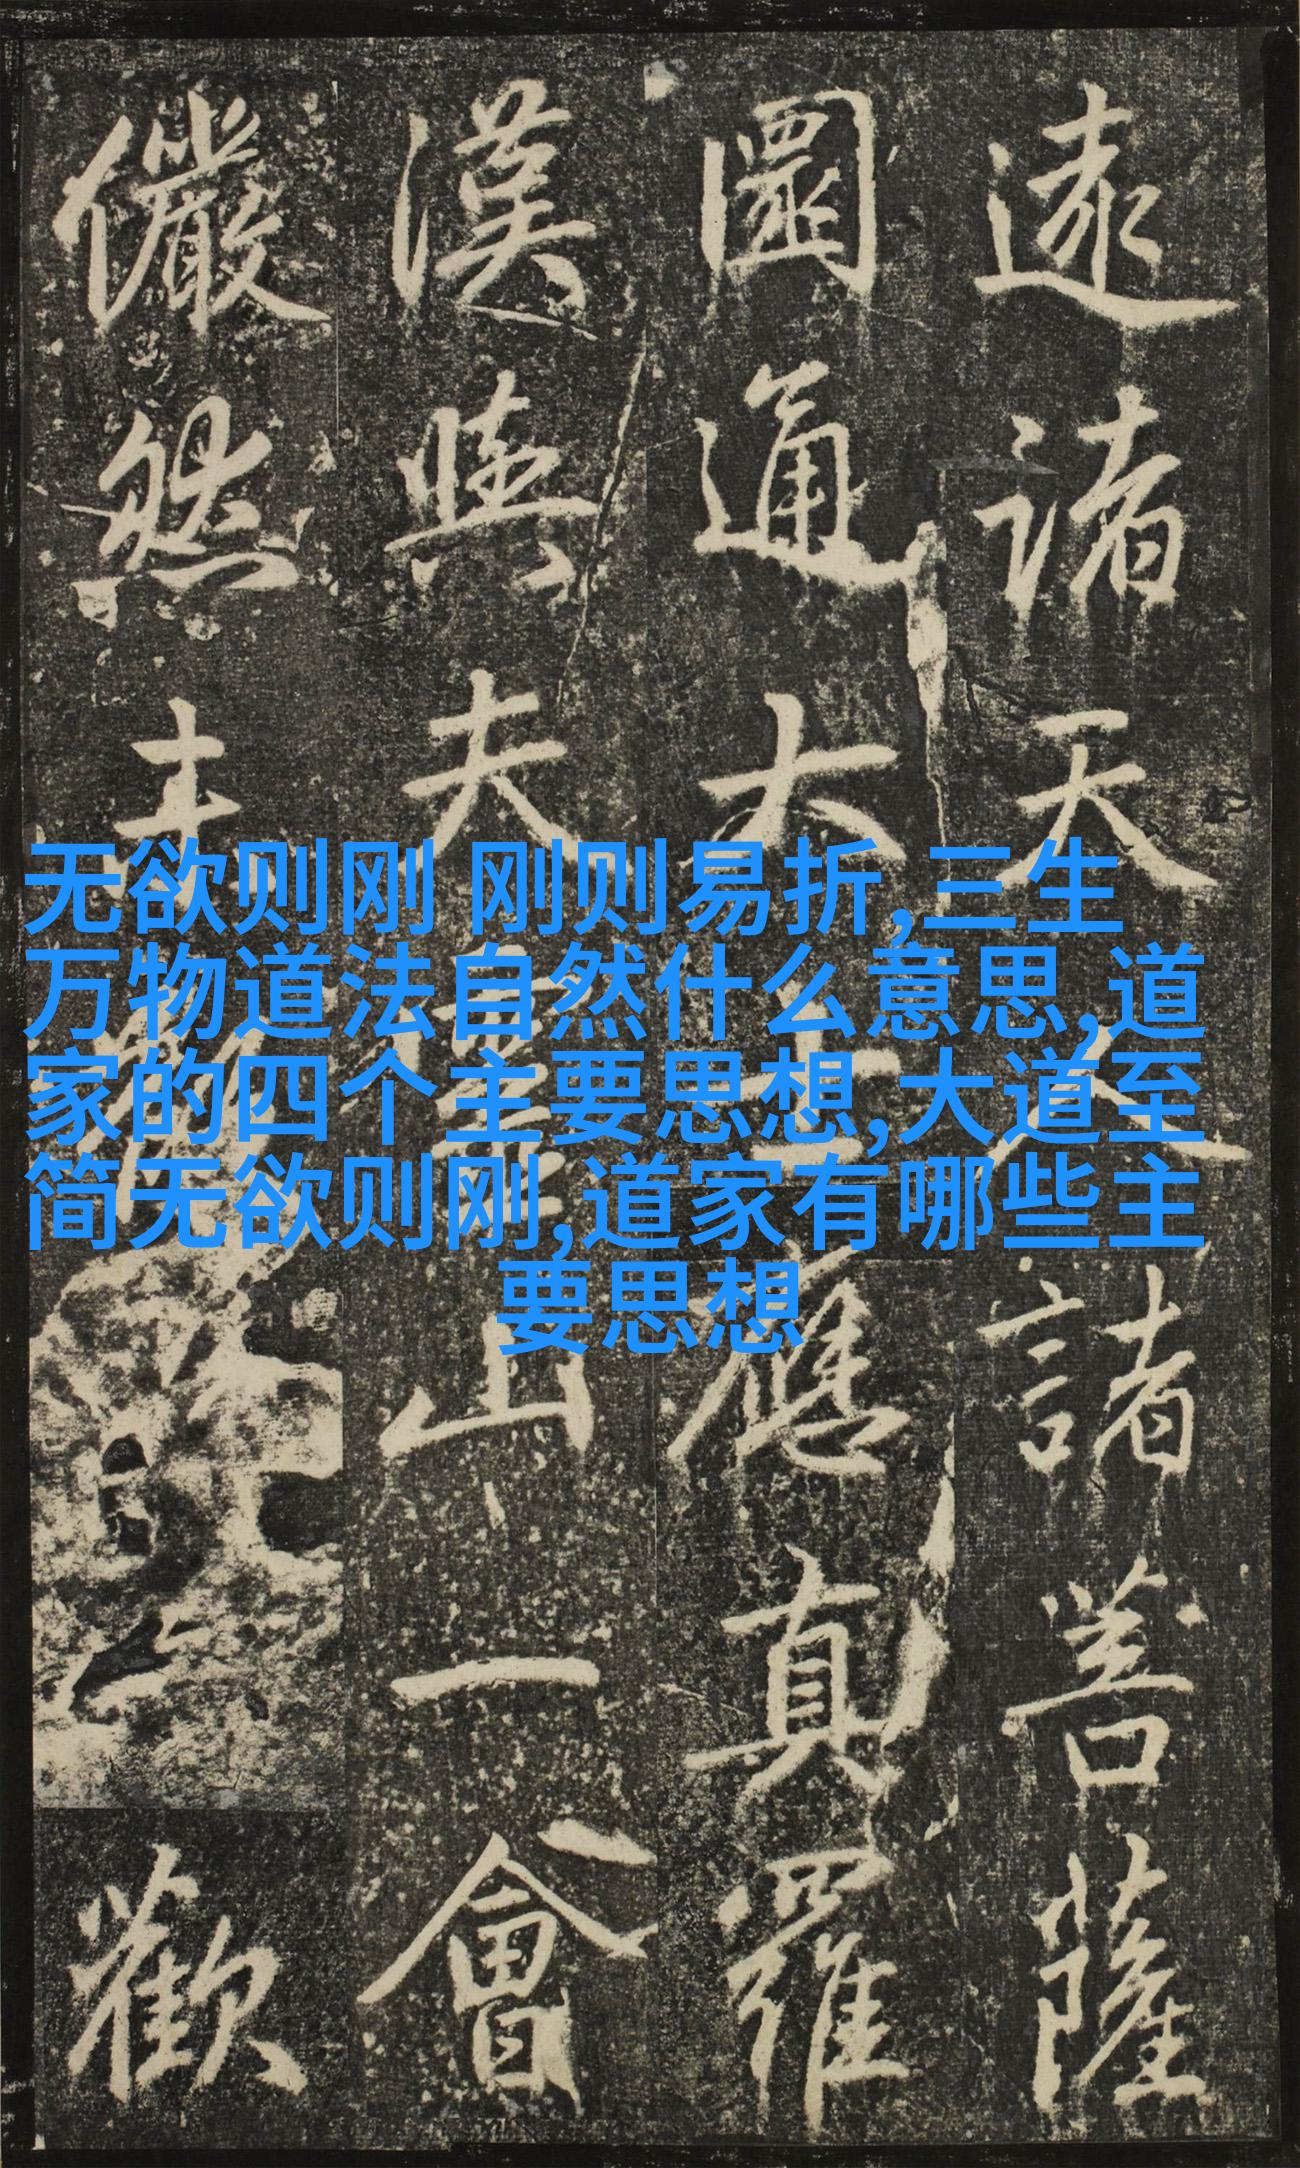 无欲则刚 刚则易折,三生
万物道法自然什么意思,道
家的四个主要思想,大道至
简无欲则刚,道家有哪些主
要思想
遠諸天人諸菩薩
圜通大士應真羅
漢與夫靈山一會
儼然 歡